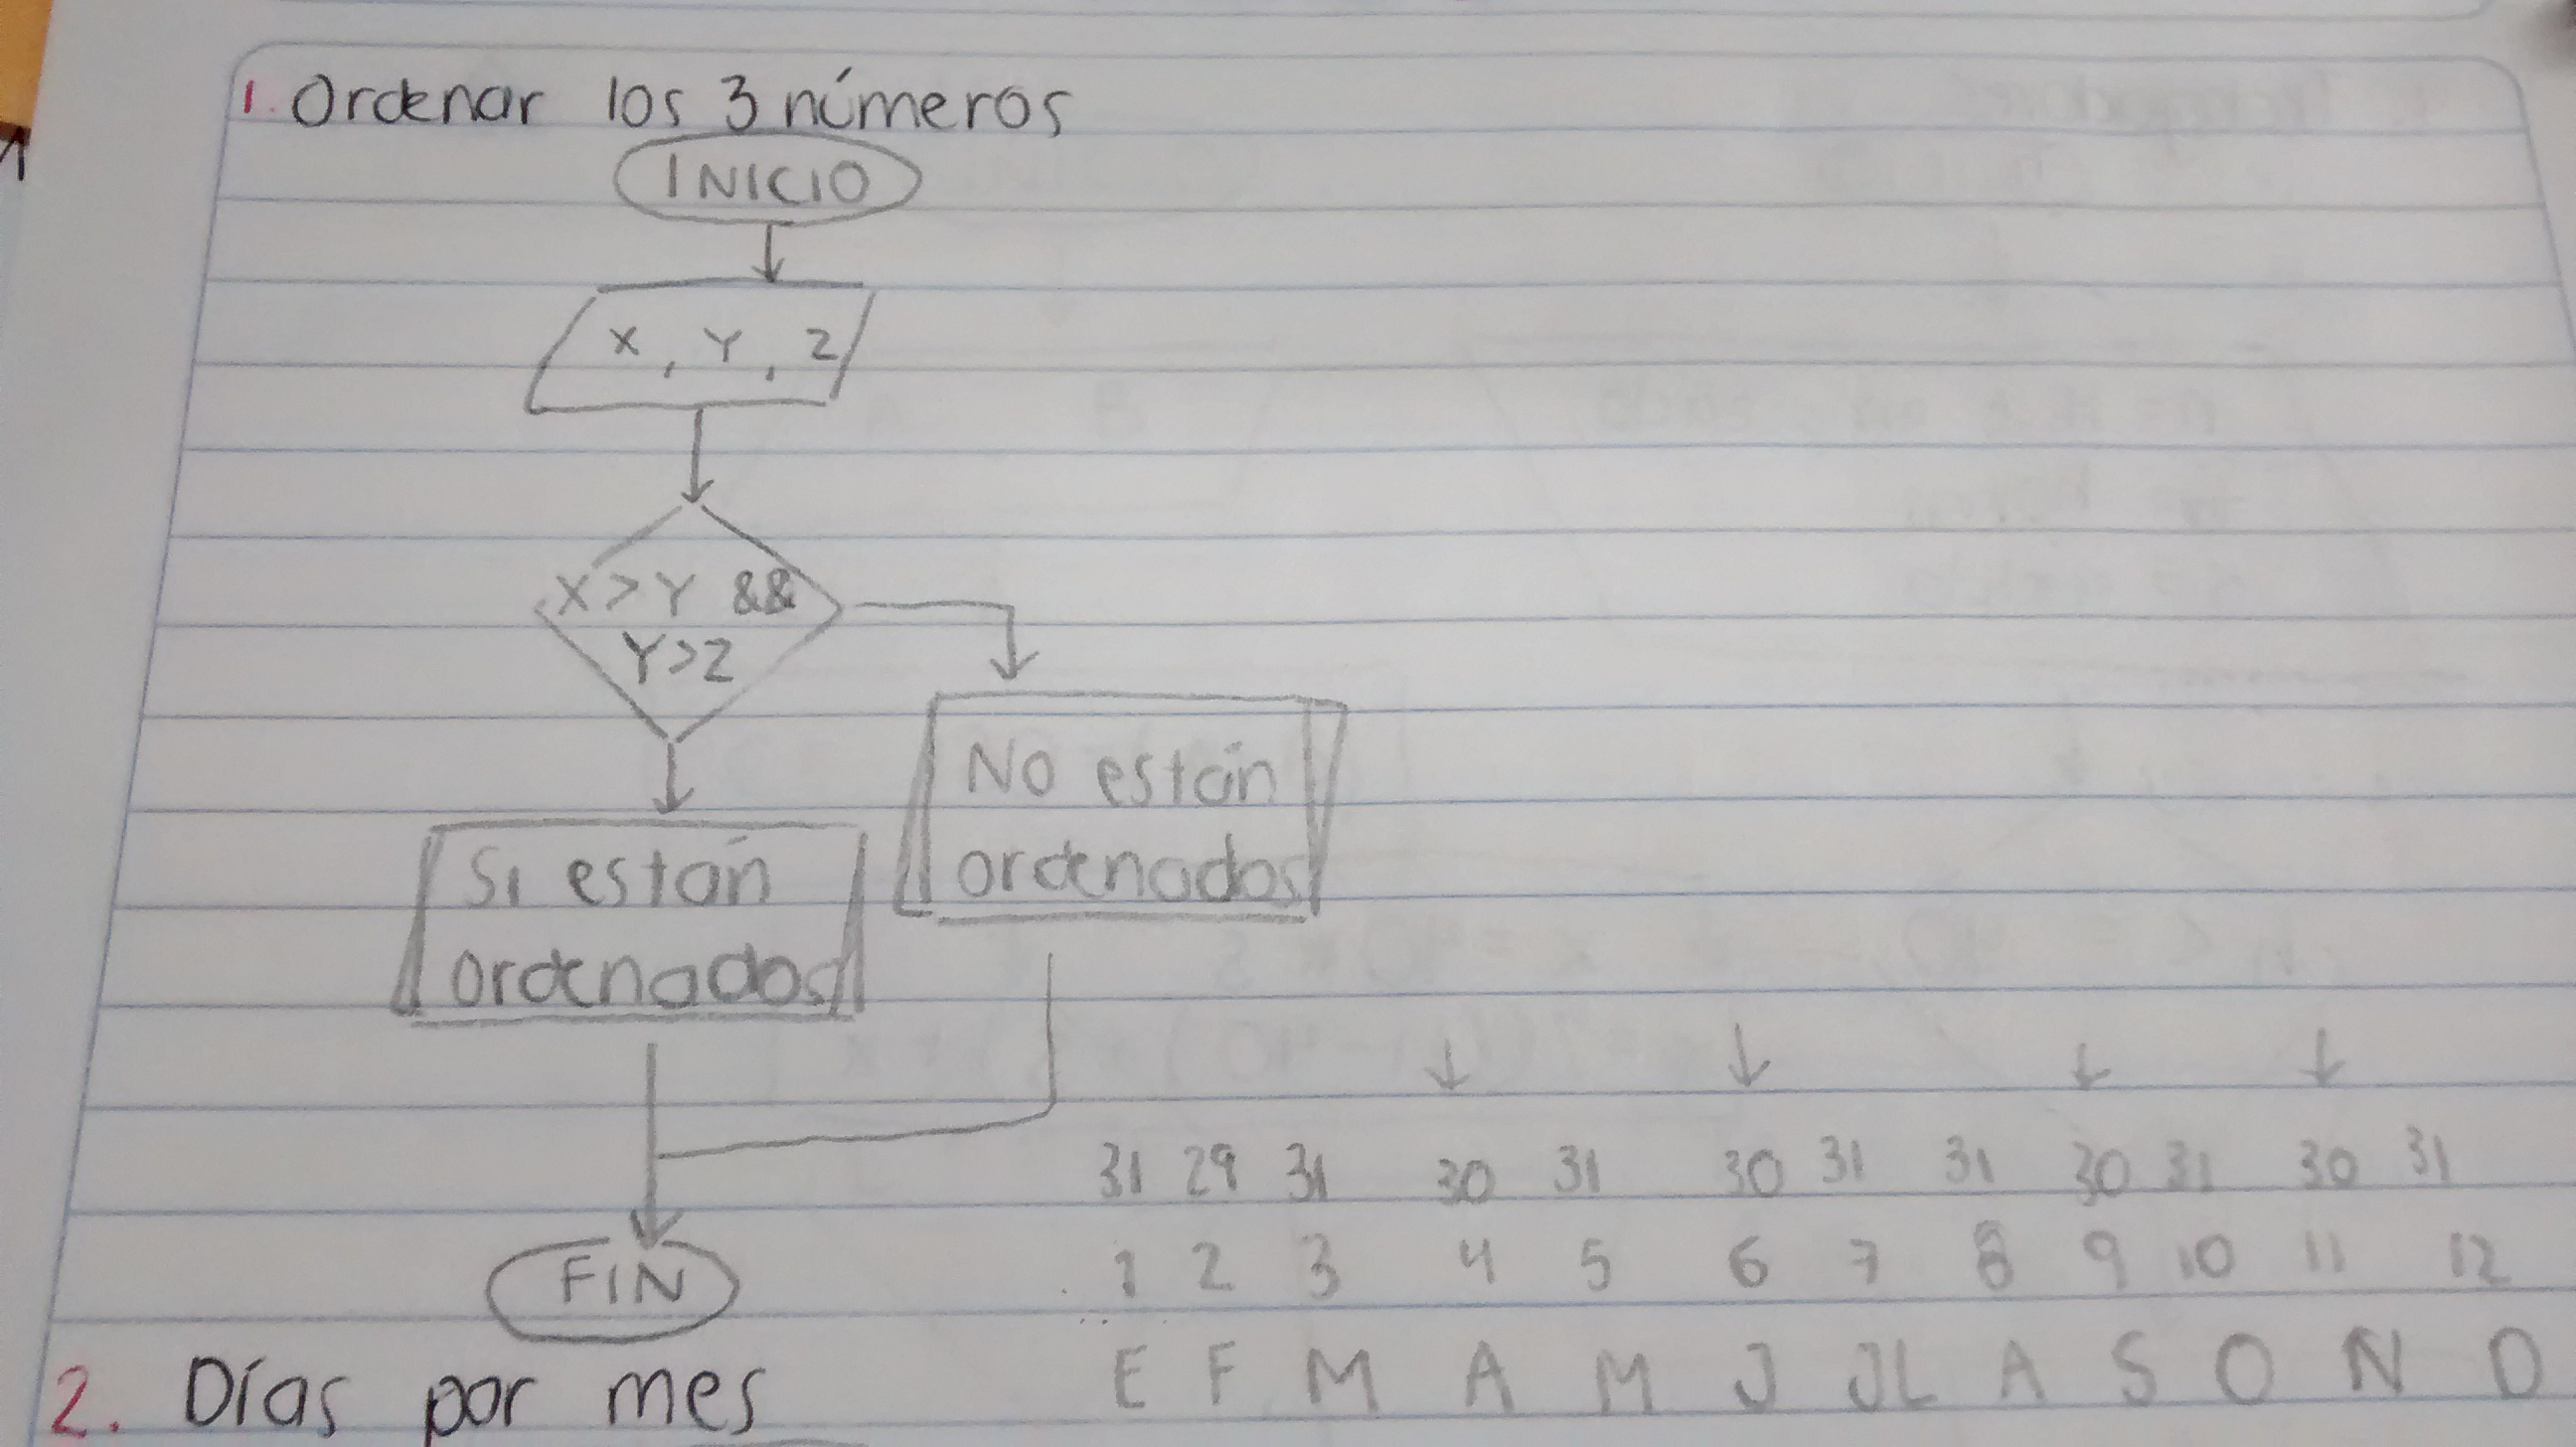 1. Ordenar los 3 números
INICIO
X, Y, Z
X > Y &&
Y > Z
No están
ordenados
Si están
ordenados
FIN
31 29 31 30 31 30 31 31 30 31 30 31
1 2 3 4 5 6 7 8 9 10 11 12
E F M A M J JL A S O N D
2. Días por mes